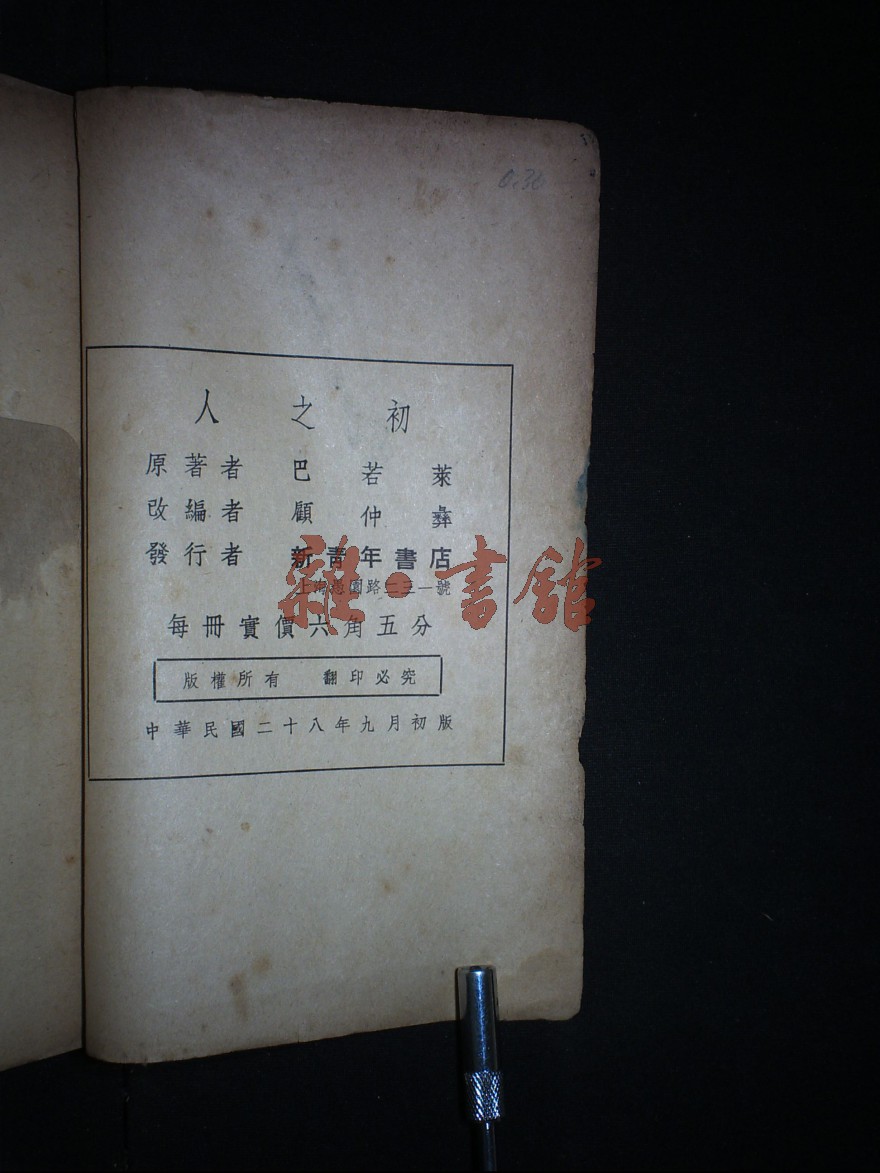 0.30
人之初
原著者 巴若萊
改編者 顧仲彝
發行者 新青年書店
上海愚園路二三一號
每冊實價六角五分
版權所有 翻印必究
中華民國二十八年九月初版
雜·書館